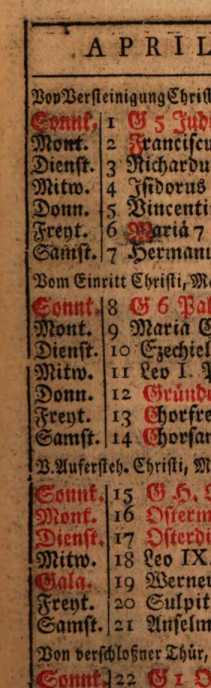 APRIL
Von Versteinigung Christ
Sonnt. 1 G 5 Judi
Mont. 2 Franciscu
Dienst. 3 Richardu
Mitw. 4 Isidorus
Donn. 5 Vincenti
Freyt. 6 Mariä 7
Samst. 7 Hermann
Vom Einritt Christi, Ma
Sonnt. 8 G 6 Pal
Mont. 9 Maria C
Dienst. 10 Ezechiel
Mitw. 11 Leo I. P
Donn. 12 Gründ
Freyt. 13 Chorfre
Samst. 14 Chorsam
V. Aufersteh. Christi, M
Sonnt. 15 G H. O
Mont. 16 Osterm
Dienst. 17 Osterdi
Mitw. 18 Leo IX.
Gala. 19 Werner
Freyt. 20 Sulpit
Samst. 21 Anselm
Von verschloßner Thür,
Sonnt. 22 G 1 O